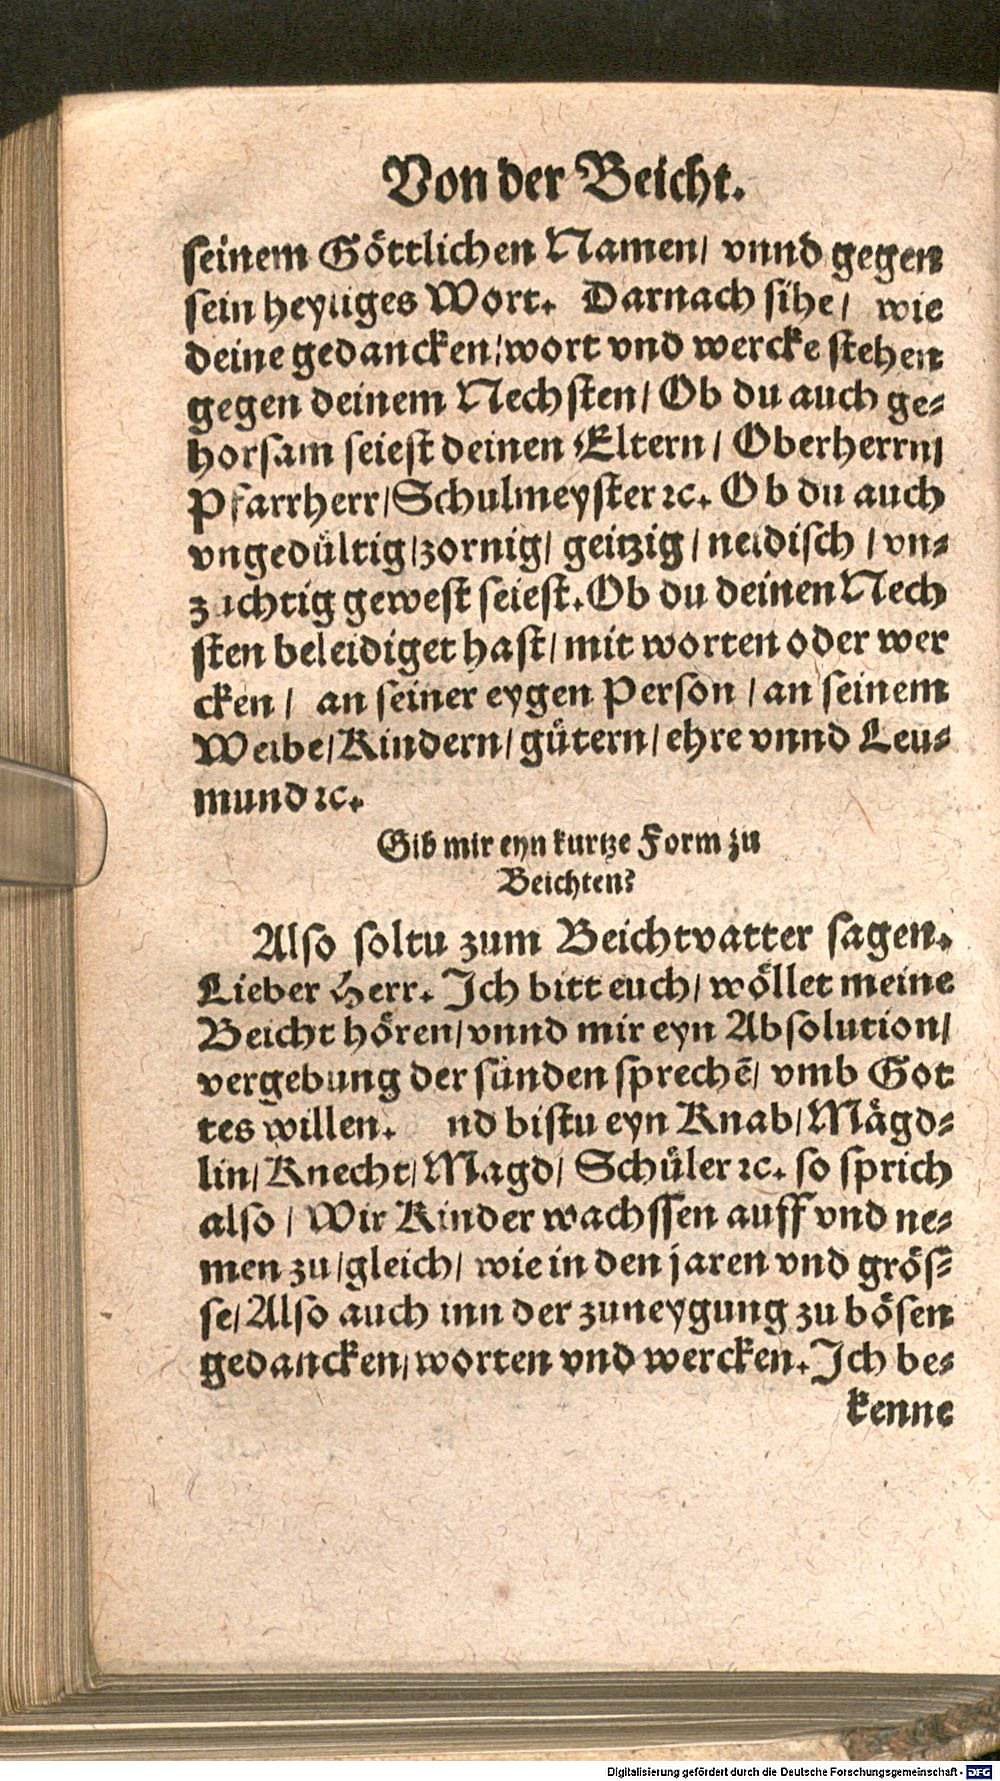 Von der Beicht.
seinem Göttlichen Namen/ vnnd gegen
sein heyliges Wort. Darnach sihe/ wie
deine gedancken/wort vnd wercke stehen
gegen deinem Nechsten/ Ob du auch ge-
horsam seiest deinen Eltern/ Oberherrn/
Pfarrherr/Schulmeyster ꝛc. Ob du auch
vngedültig/zornig/ geitzig/ neidisch/ vn-
züchtig gewest seiest. Ob du deinen Nech
sten beleidiget hast/ mit worten oder wer
cken/ an seiner eygen Person/ an seinem
Weibe/Kindern/gütern/ehre vnnd Leu-
mund ꝛc.
Gib mir eyn kurtze Form zu
Beichten?
Also soltu zum Beichtvatter sagen.
Lieber Herr. Ich bitt euch/ wöllet meine
Beicht hören/vnnd mir eyn Absolution/
vergebung der sünden sprechē/ vmb Got
tes willen. nd bistu eyn Knab/Mägd-
lin/Knecht/Magd/ Schüler ꝛc. so sprich
also/ Wir Kinder wachssen auff vnd ne-
men zu/gleich/ wie in den jaren vnd grös-
se/Also auch inn der zuneygung zu bösen
gedancken/worten vnd wercken. Ich be-
kenne
Digitalisierung gefördert durch die Deutsche Forschungsgemeinschaft - DFG